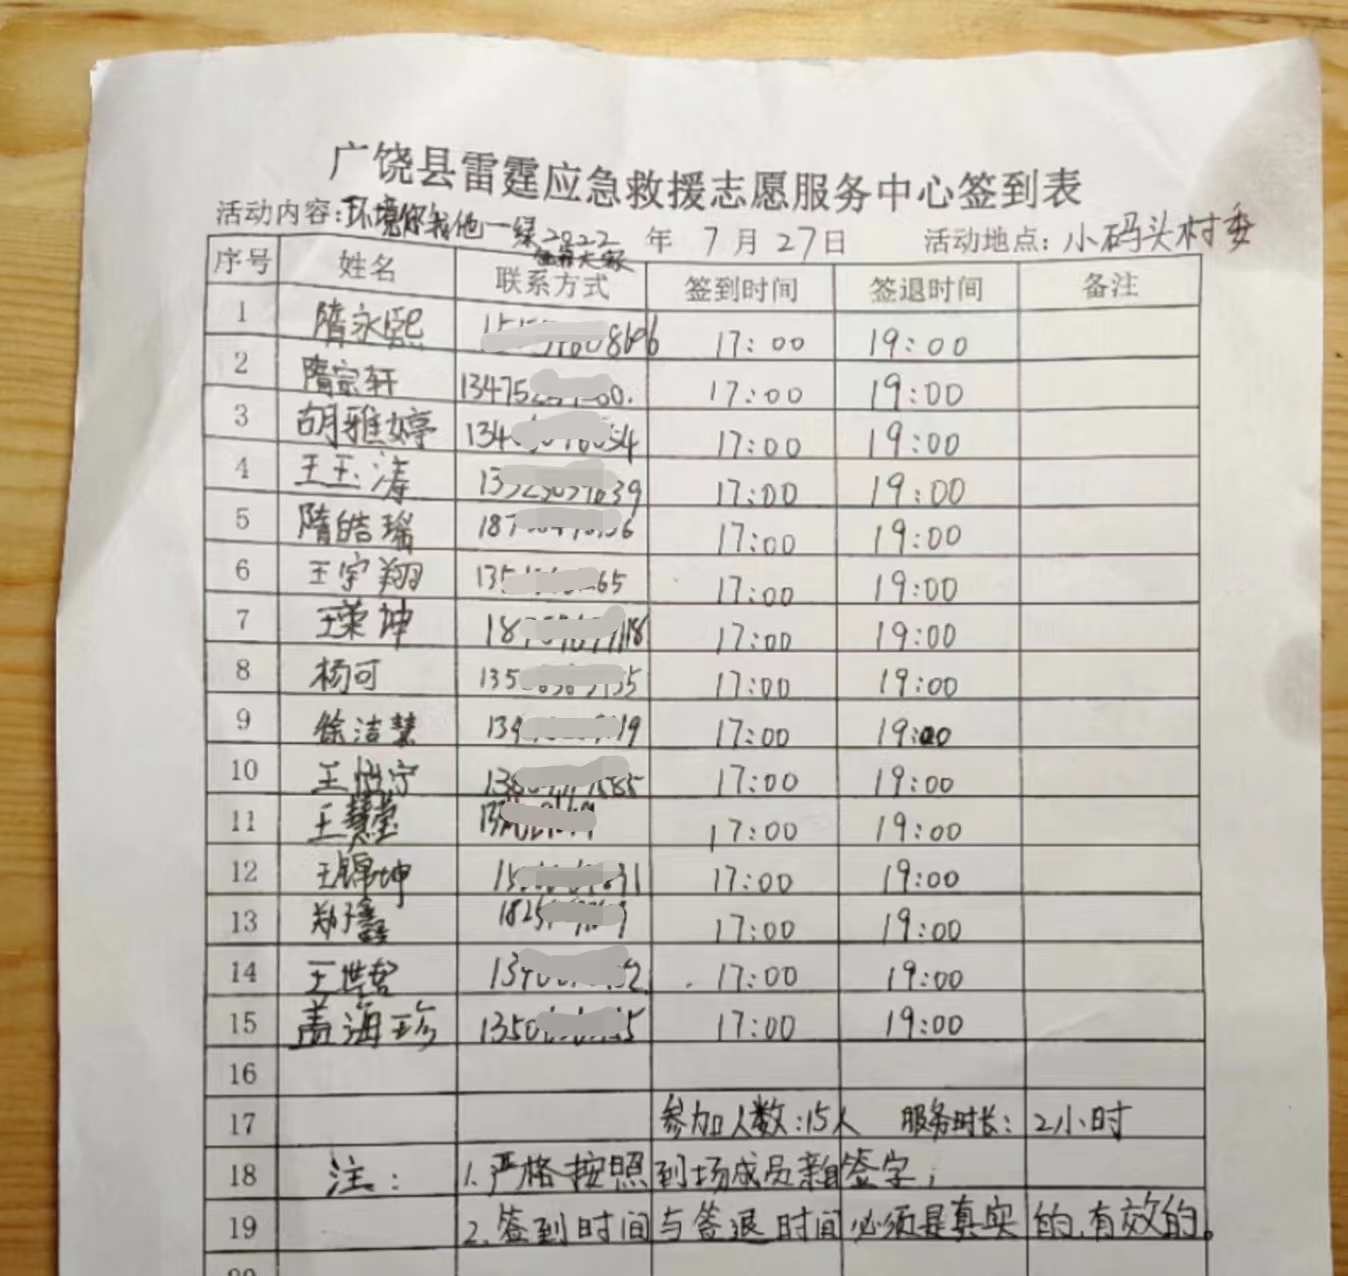 广饶县雷霆应急救援志愿服务中心签到表
活动内容:环境你我他一绿 2022 年 7月27日 活动地点:小码头村委
大家
序号 姓名 联系方式 签到时间 签退时间 备注
1 隋永熙 8696 17:00 19:00
2 隋宗轩 13475 00. 17:00 19:00
3 胡雅婷 134 54 17:00 19:00
4 王玉涛 133 39 17:00 19:00
5 隋皓瑞 187 36 17:00 19:00
6 王宇翔 135 65 17:00 19:00
7 王荣坤 187 118 17:00 19:00
8 杨可 135 55 17:00 19:00
9 徐洁慧 134 19 17:00 19:00
10 王怡宁 138 585 17:00 19:00
11 王慧莹 17:00 19:00
12 王锦坤 15 31 17:00 19:00
13 郑子鑫 182 9 17:00 19:00
14 王世哲 134 2 17:00 19:00
15 盖海珍 1350 5 17:00 19:00
16
17 参加人数:15人 服务时长:2小时
18 注: 1.严格按照到场成员亲自签字;
19 2.签到时间与签退时间必须是真实的,有效的。